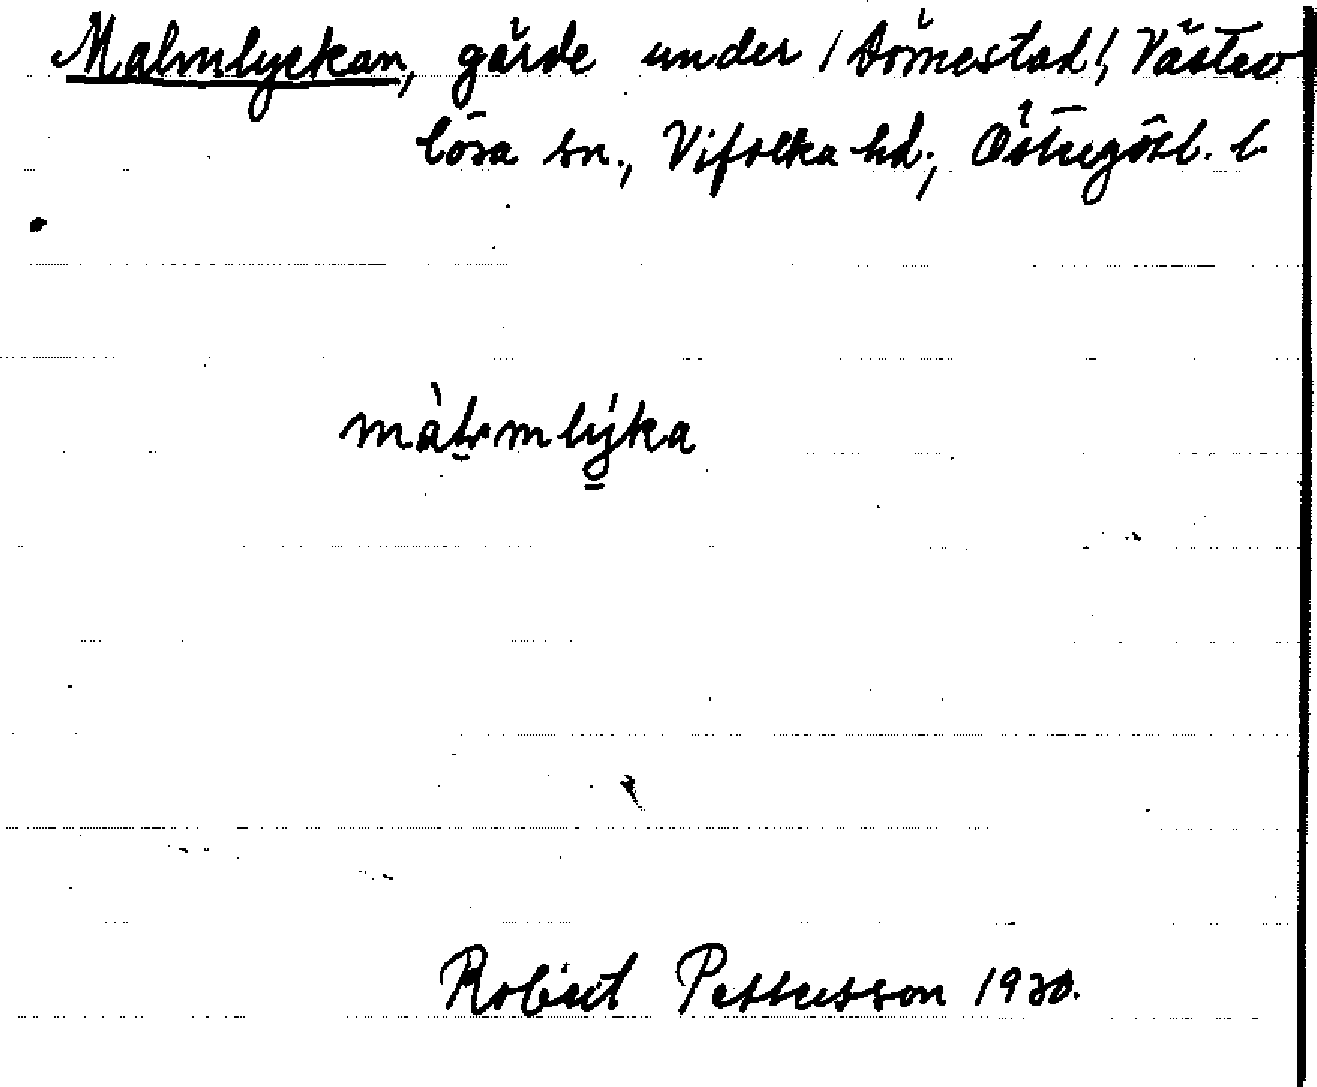 Malmlyckan, gärde under / Dömestad /, Väster
lösa sn., Vifolka hd., Östergötl. l.
màlmlýka
Robert Pettersson 1930.